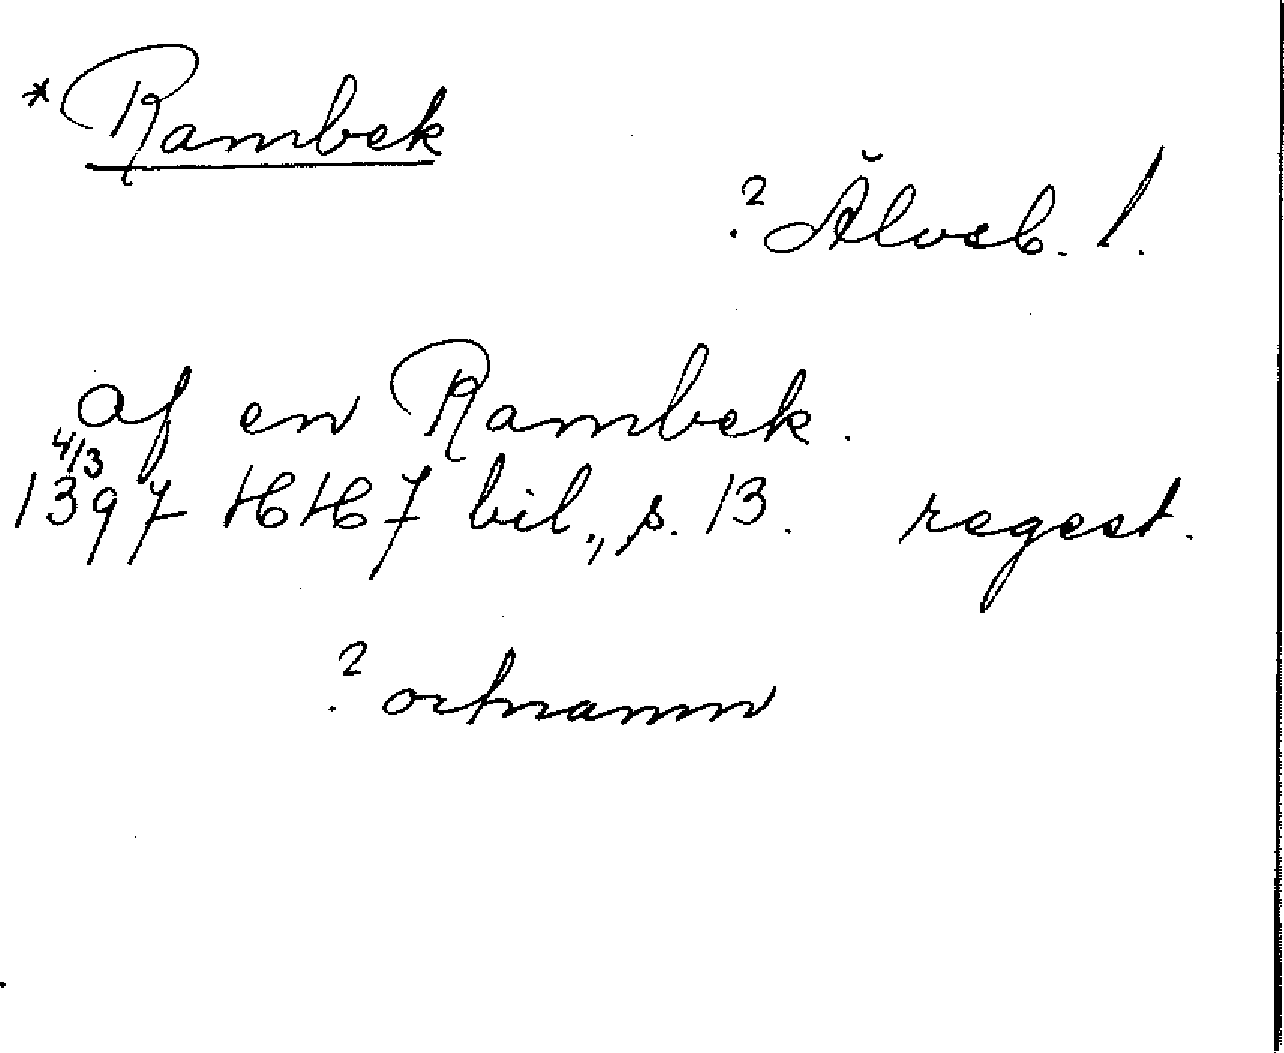 *Rambek
? Älvsb. l.
af en Rambek.
4/3
1397 HH 7 bil., s. 13. regest.
? ortnamn